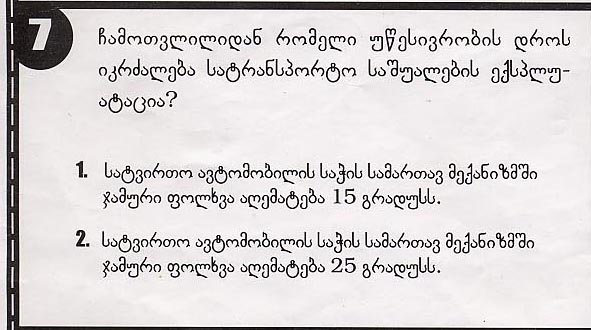 7
ჩამოთვლილიდან რომელი უწესივრობის დროს
იკრძალება სატრანსპორტო საშუალების ექსპლუ-
ატაცია?
1. სატვირთო ავტომობილის საჭის სამართავ მექანიზმში
ჯამური ფოლხვა აღემატება 15 გრადუსს.
2. სატვირთო ავტომობილის საჭის სამართავ მექანიზმში
ჯამური ფოლხვა აღემატება 25 გრადუსს.